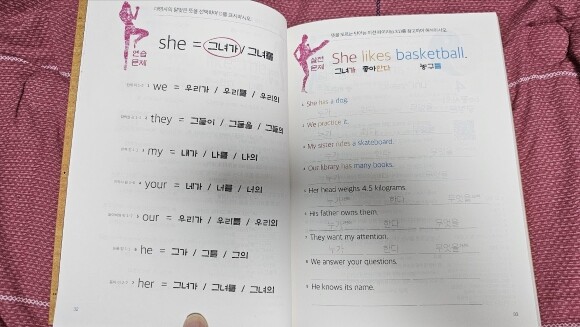 연습
문제
she = 그녀가 / 그녀를
we = 우리가 / 우리를 / 우리의
they = 그들이 / 그들을 / 그들의
my = 내가 / 나를 / 나의
your = 네가 / 너를 / 너의
our = 우리가 / 우리를 / 우리의
he = 그가 / 그를 / 그의
her = 그녀가 / 그녀를 / 그녀의
실전
문제
She likes basketball.
그녀가 좋아한다 농구를
She has a dog.
We practice it.
My sister rides a skateboard.
Our library has many books.
Her head weighs 4.5 kilograms.
누가 한다 무엇을
His father owns them.
누가 한다 무엇을
They want my attention.
누가 한다 무엇을
We answer your questions.
He knows its name.